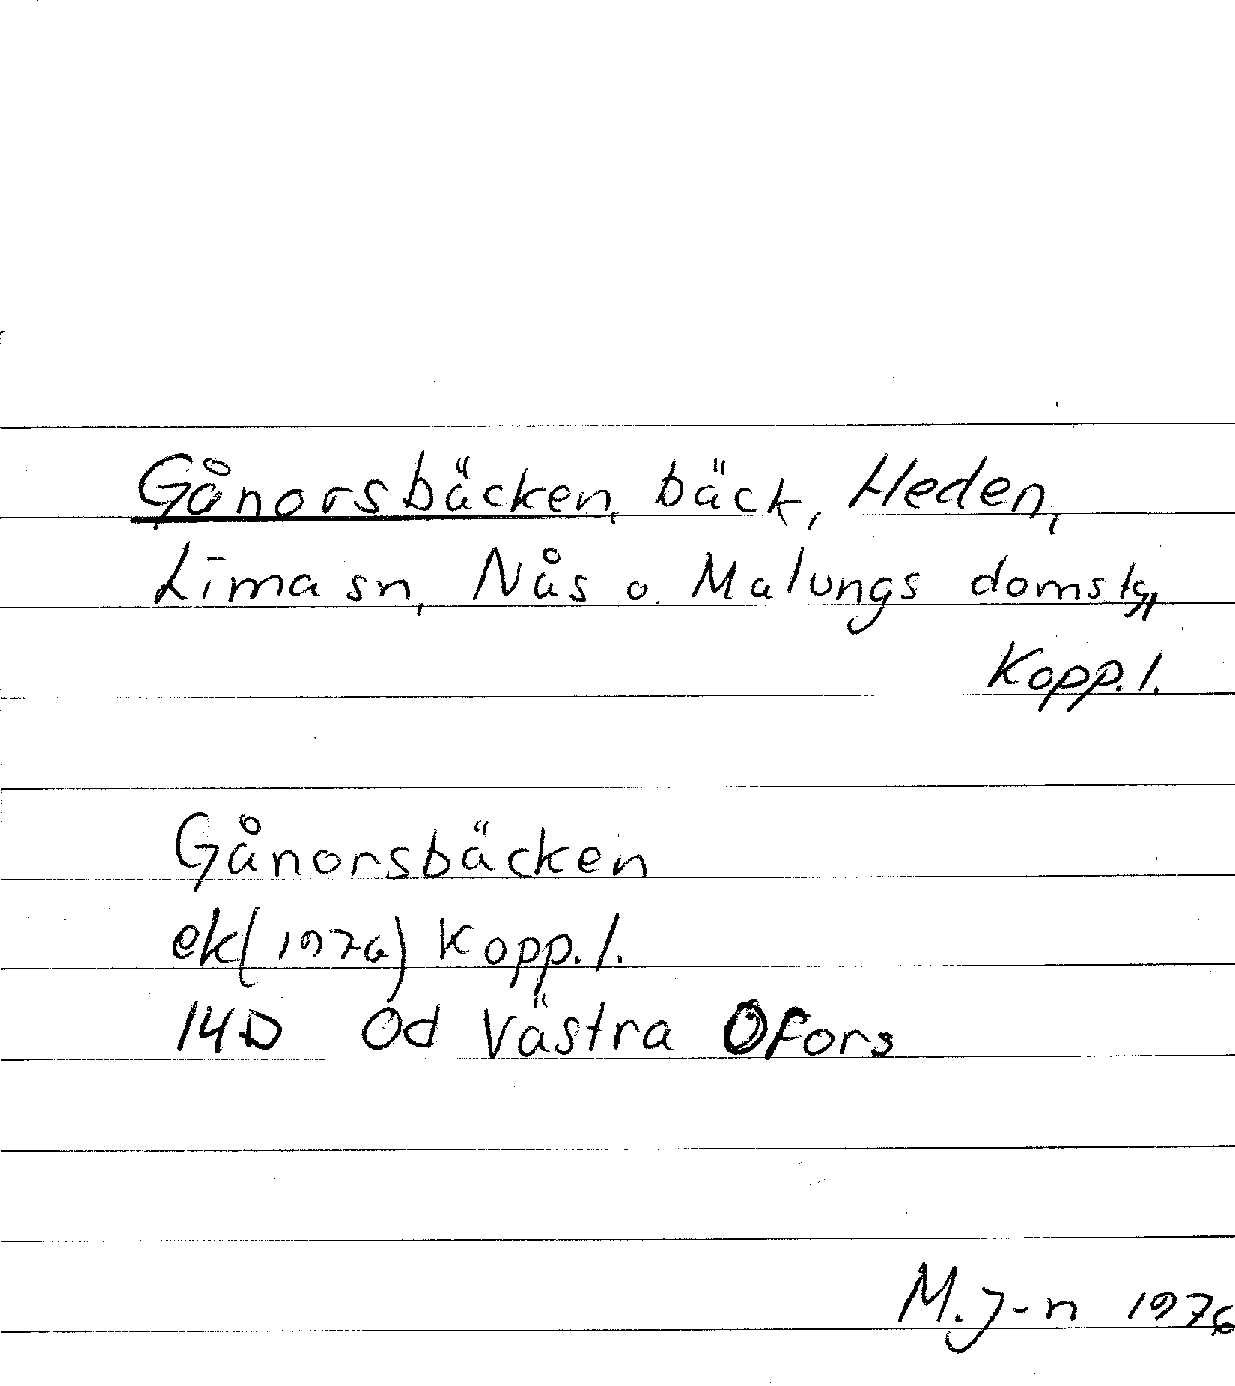 Gånorsbäcken, bäck, Heden,
Lima sn, Nås o. Malungs domsg,
Kopp. l.
Gånorsbäcken
ek (1976) Kopp. l.
14D Od Västra Ofors
M. J-n 1976